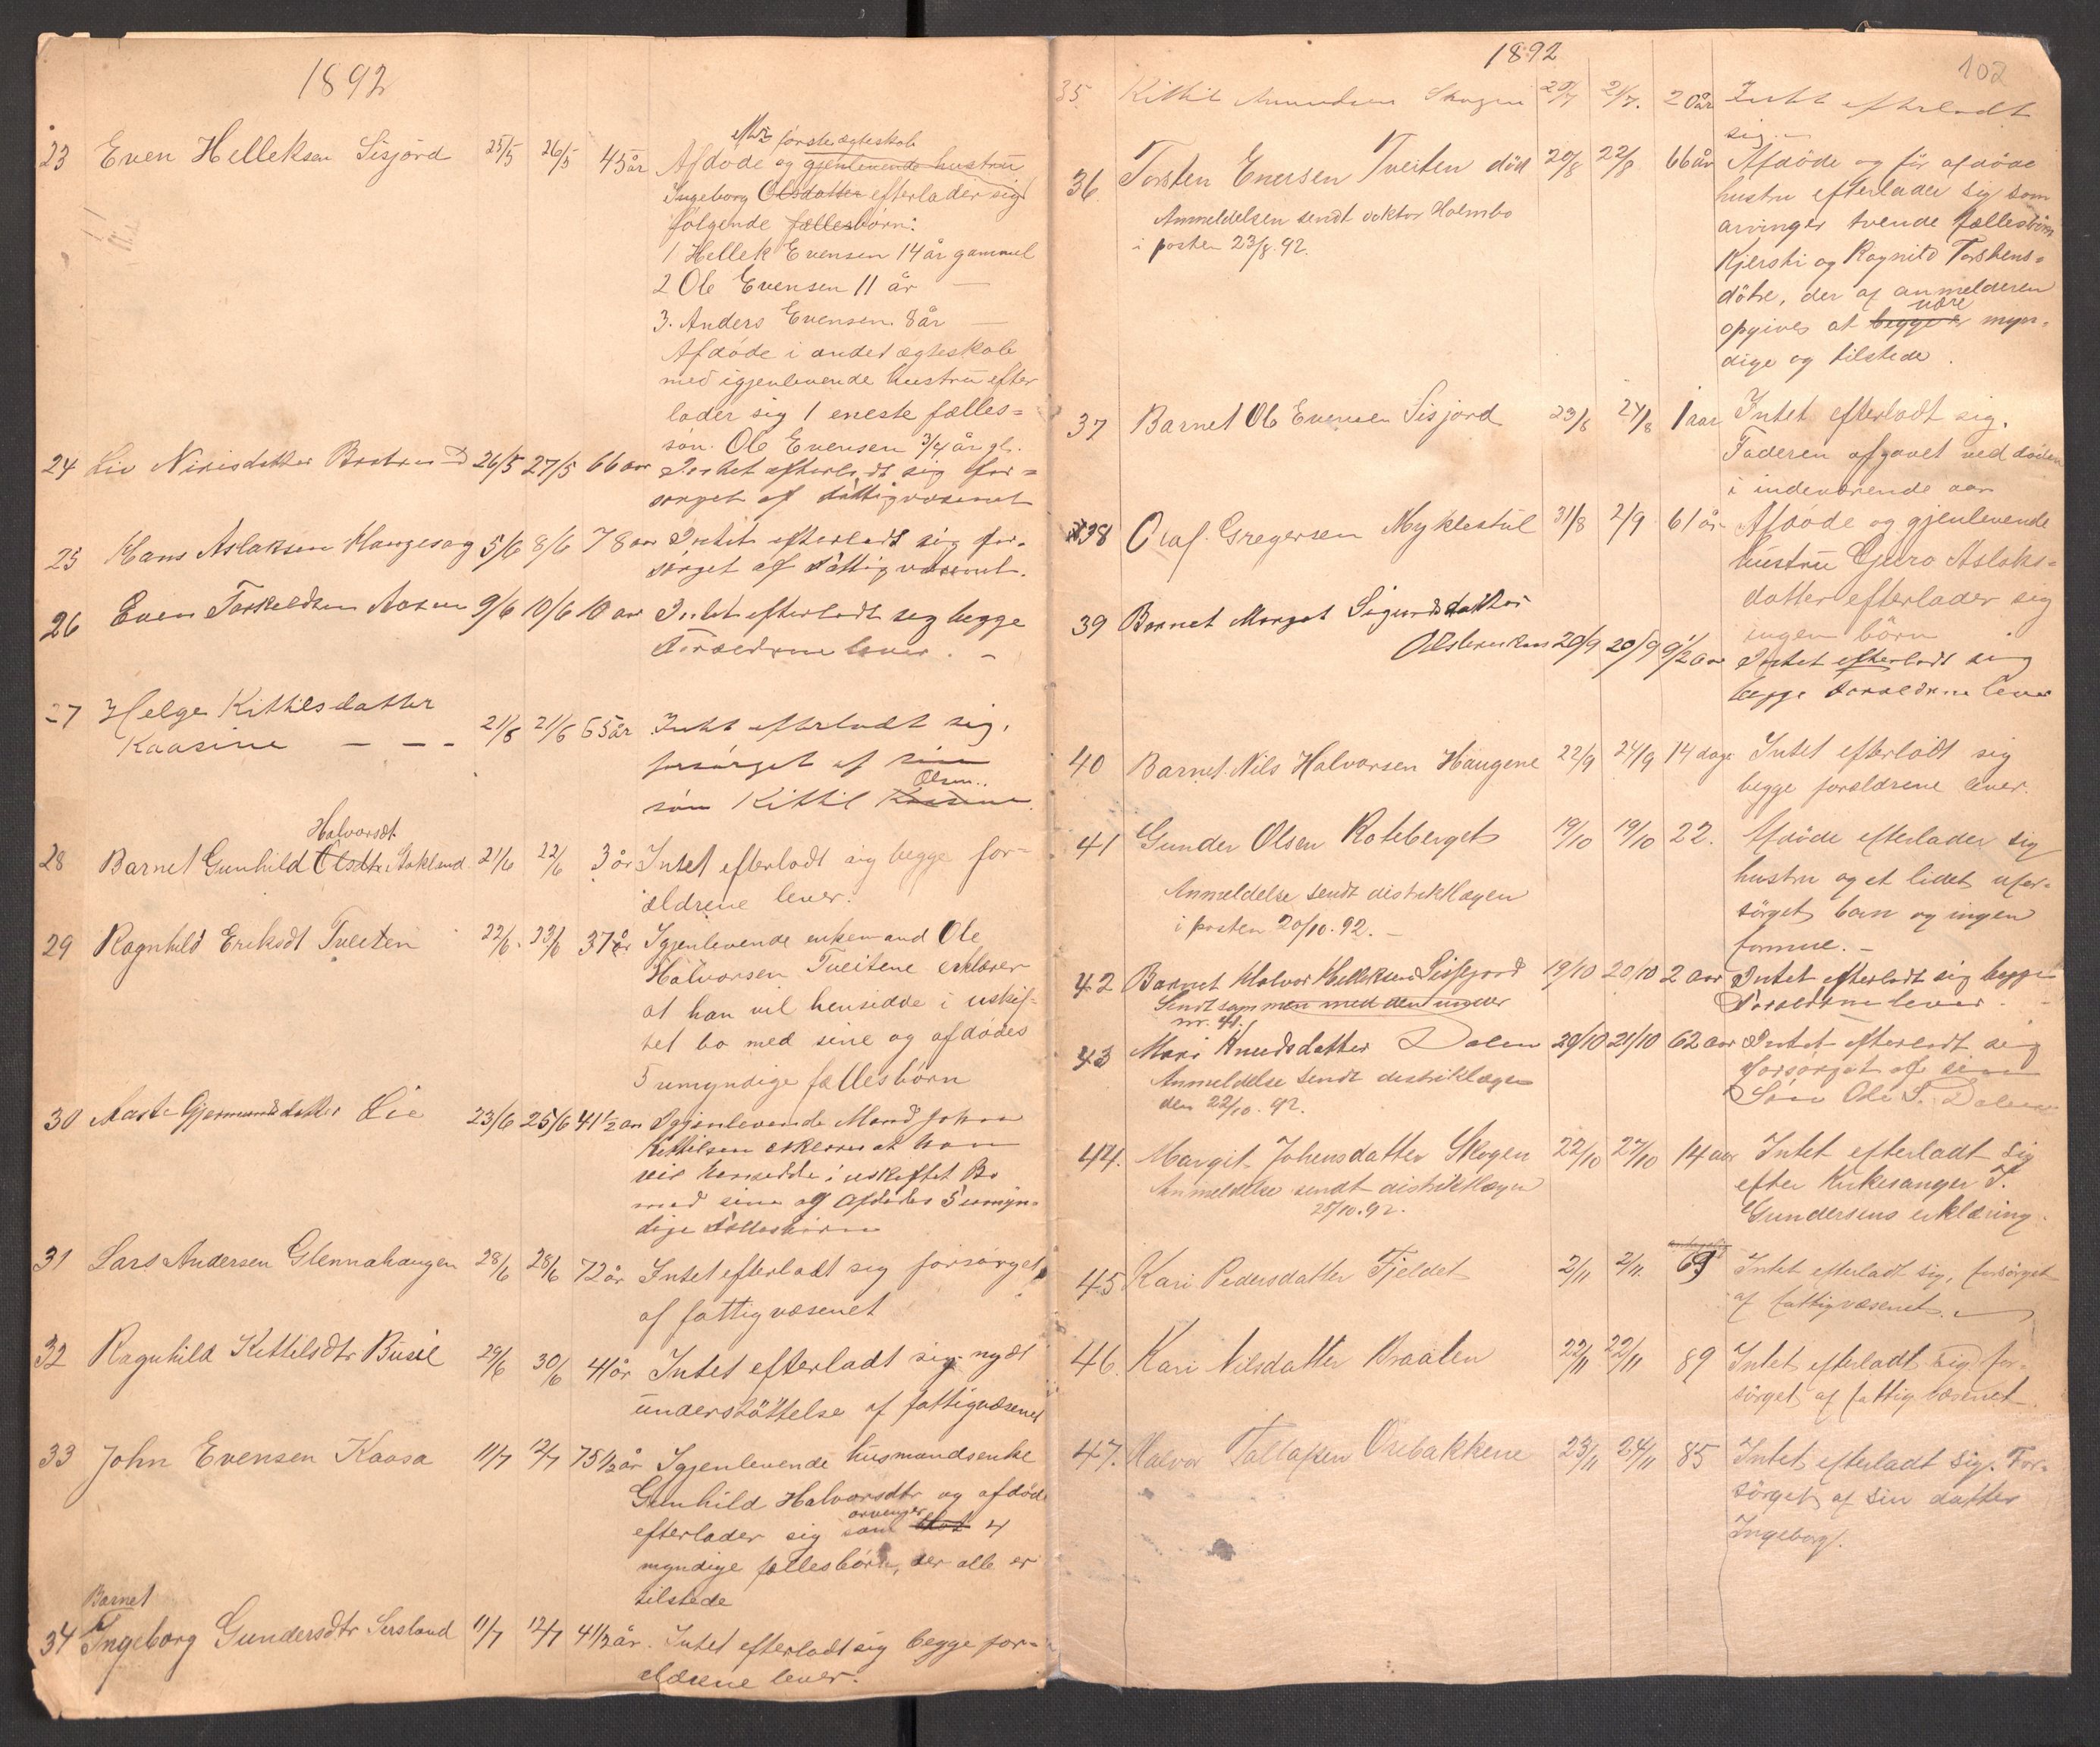 1892
23 Even Helleksen Sisjord 25/5 26/5 45 år Afdøde og gjenlevende hustru
efter første ægteskab
Ingeborg Olsdatter efterlader sig
følgende fællesbörn:
1 Hellek Evensen 14 år gammel
2 Ole Evensen 11 år —
3. Anders Evensen 8 år —
Afdøde i andet ægteskab
med igjenlevende hustru efter
lader sig 1 eneste fælles=
søn. Ole Evensen 3/4 år gl.
24 Liv Nirisdatter 26/5 27/5 66 aar Intet efterladt sig for=
sørget af Fattigvæsenet
25 Hans Aslaksen Haugesag 5/6 8/6 78 aar Intet efterladt sig for-
sørget af Fattigvæsenet.
26 Even Torkeldsen Aasen 9/6 10/6 10 aar Intet efterladt sig begge
Foræeldrene lever. –
27 Helge Kittilsdatter
Kaasine — – – 21/6 21/6 65 år Intet efterladt sig,
forsörget af sin
Olsen..
sön Kittil Kaasene.
Halvorsdt.
28 Barnet Gunhild Olsdtr. Stokland 21/6 22/6 3 år Intet efterladt sig begge for=
ældrene lever.
29 Ragnhild Eriksdt Tveiten 22/6. 23/6 37 år Igjenlevende enkemand Ole
Halvorsen Tveitene erklærer
at han vil hensidde i uskif=
tet bo med sine og afdødes
5 umyndige fællesbörn
30 Aaste Gjermundsdatter Lie 23/6 25/6 41 1/2 aar Igjenlevende Mand John
Kittilsen erklerer at han
vil hensidde i uskiftet Bo
med sine og Afdødes 5 umyn=
dige Fællesbörn
31 Lars Andersen Glennahaugen 28/6 28/6 72 år Intet efterladt sig forsørget
af fattigvæsenet
32 Ragnhild Kittilsdtr Busil 29/6 30/6 41 år Intet efterladt sig. nydt
understöttelse af fattigvæsenet
33 John Evensen Kaasa 11/7 12/7 75 1/2 år Igjenlevende husmandsenke
Gunhild Halvorsdtr og afdøde
arvinger
efterlader sig som 4
myndige fællesbörn, der alle er
tilstede
Barnet
34 Ingeborg Gundersdtr Sersland 11/7 12/7 4 1/2 år. Intet efterladt sig begge for=
ældrene lever.
1892
102
35. Kittil Amundsen Skogen 20/7 21/7. 20 år Intet efterladt
sig. –
36 Torsten Enersen Tveiten död 20/8 22/8 66 år Afdøde og för afdöde
hustru efterlader sig som
Anmeldelsen sendt doktor Holmbo
i posten 23/8. 92.
arvinger tvende fællesbörn
Kjersti og Ragnild Torstens=
døtre, der af anmelderen
være
opgives at begge er myn=
dige og tilstede.
37 Barnet Ole Evensen Sisjord 23/8 24/8 1 aar Intet efterladt sig.
Faderen afgaaet ved döden
i indeværende aar
38 Olaf Gregersen Myklestul 31/8 2/9 61 år Afdøde og gjenlevende
hustru Guro Aslaks=
datter efterlader sig
ingen börn
39 Barnet Margat Sigurdsdatter
20/9 20/9 9 1/2 aar Intet efterladt sig
begge Forældrene lever
40 Barnet Nils Halvorsen Haugene 22/9 24/9 14 dage Intet efterladt sig
begge forældrene lever.
41 Gunder Olsen Roteberget 19/10 19/10 22. Afdøde efterlader sig
hustru og et lidet ufor=
sörget barn og ingen
formue. –
Anmeldelse sendt distriktlægen
i posten 20/10. 92. –
42 Barnet Halvor Helleksen Sisjord 19/10 20/10 2 aar Intet efterladt sig begge
Forældrene lever. –
Sendt sammen med den under
nr. 41.
43 Mari Knudsdatter Dalen 20/10 21/10 62 aar Intet efterladt sig
Forsörget af sin
Søn Ole T. Dalen
Anmeldelse sendt distriktlægen
den 22/10. 92.
44. Margit Johensdatter Skogen 22/10 27/10 14 aar Intet efterladt sig
efter Kirkesanger T.
Gundersens erklæring.
Anmeldelse sendt distriktlægen
28/10. 92.
45 Kari Pedersdatter Fjeldet 2/11 2/11. 69 Intet efterladt sig, forsörget
af fattigvæsenet.
46. Kari Nilsdatter Braaten 22/11 22/11 89 Intet efterladt sig for=
sörget af fattigvæsenet.
47. Halvor Tallafsen Orebakkene 23/11 24/11 85 Intet efterladt sig. For=
sörget af sin datter
Ingeborg.